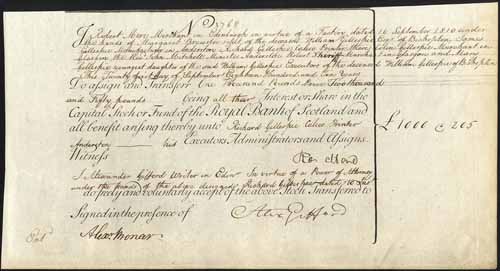 No 3768
I Robert Merry Merchant in Edinburgh in virtue of a Factory dated 10 September 1810 under
the hands of Margaret relict of the deceased William Gillespie Esqr. of Bishopton, James
Gillespie in Anderston Richard Gillespie Calico Printer there, Colin Gillespie Merchant in
Glasgow the Revd. John Mitchell Minister Anderston
Gillespie youngest daughter of the said William Gillespie Executors of the deceased William Gillespie of Bishopton
This Twenty first day of September Eighteen Hundred and Ten Years
Do assign and Transferr One Thousand Pounds Two thousand
and Fifty pounds being all their Interest or Share in the
Capital Stock or Fund of the Royal Bank of Scotland and
all benefit arising thereby unto Richard Gillespie Calico Printer
Anderston his Executors, Administrators and Assigns
£1000 @ 205
Witness
I Alexander Gifford Writer in Edinr. In virtue of a Power of Attorney
under the hand of the above designed Richard Gillespie dated 10
do freely and voluntarily accept of the above Stock Transferred to
Signed in the presence of Alexr Gifford
Alexr Monar